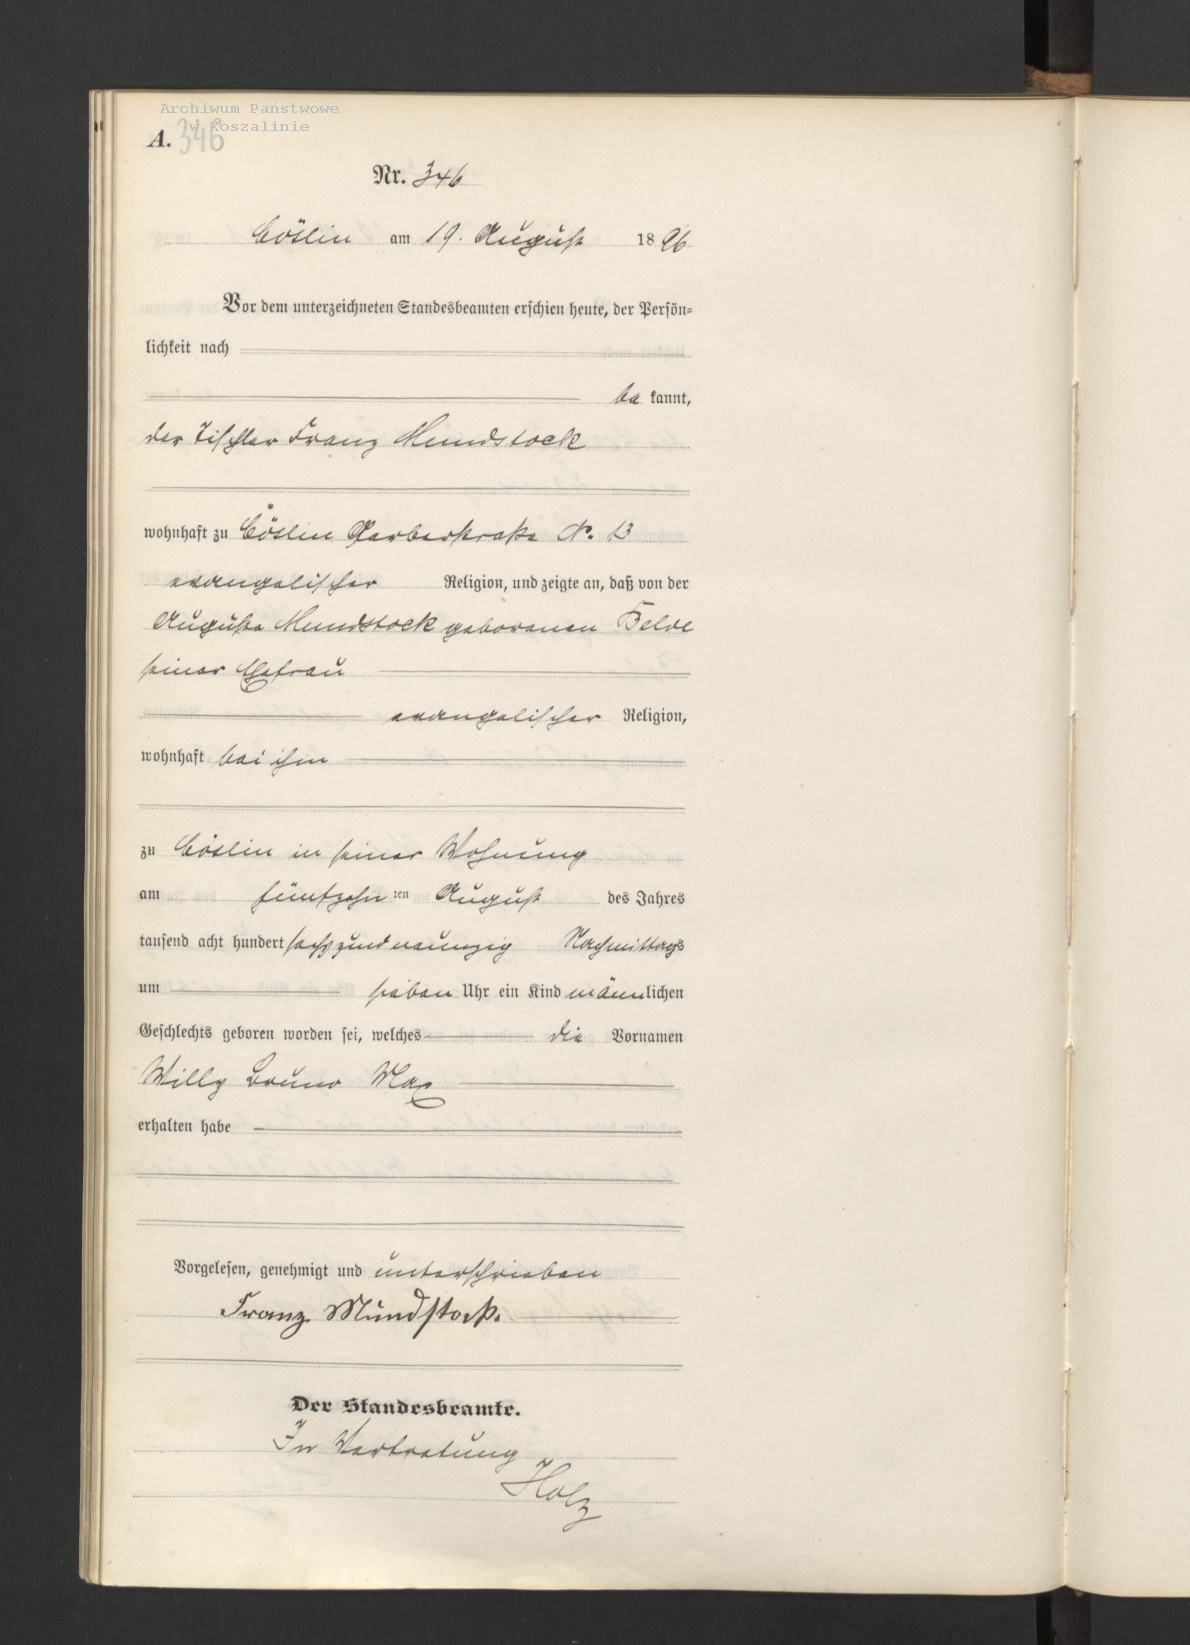 Archiwum Państwowe
w Koszalinie
A. 346
Nr. 346
Cöslin am 19. August 1896
Vor dem unterzeichneten Standesbeamten erschien heute, der Persön-
lichkeit nach
be kannt,
der Tischler Franz Mundstock
wohnhaft zu Cöslin Gerberstraße No. 13
evangelischer Religion, und zeigte an, daß von der
Auguste Mundstock geborenen
seiner Ehefrau
evangelischer Religion,
wohnhaft bei ihm
zu Cöslin in seiner Wohnung
am fünfzehn ten August des Jahres
tausend acht hundert sechsundneunzig Nachmittags
um sieben Uhr ein Kind männlichen
Geschlechts geboren worden sei, welches die Vornamen
Willy Bruno Max
erhalten habe
Vorgelesen, genehmigt und unterschrieben
Franz Mundstock.
Der Standesbeamte.
In Vertretung
Holz